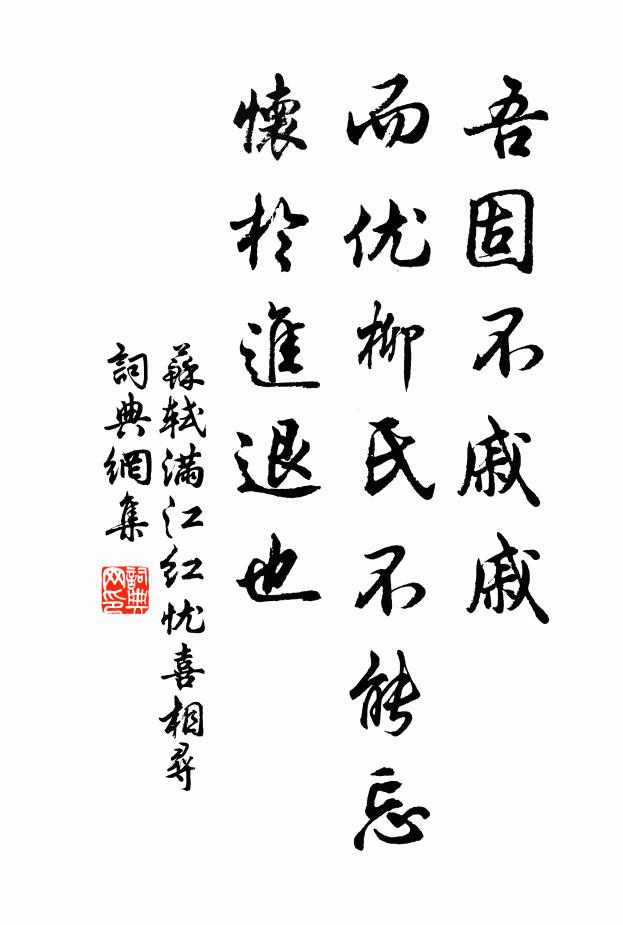 吾固不戚戚
而优柳氏不能忘
懷於進退也
蘇軾满江红忧喜相尋
詞典網集
詞典
网印